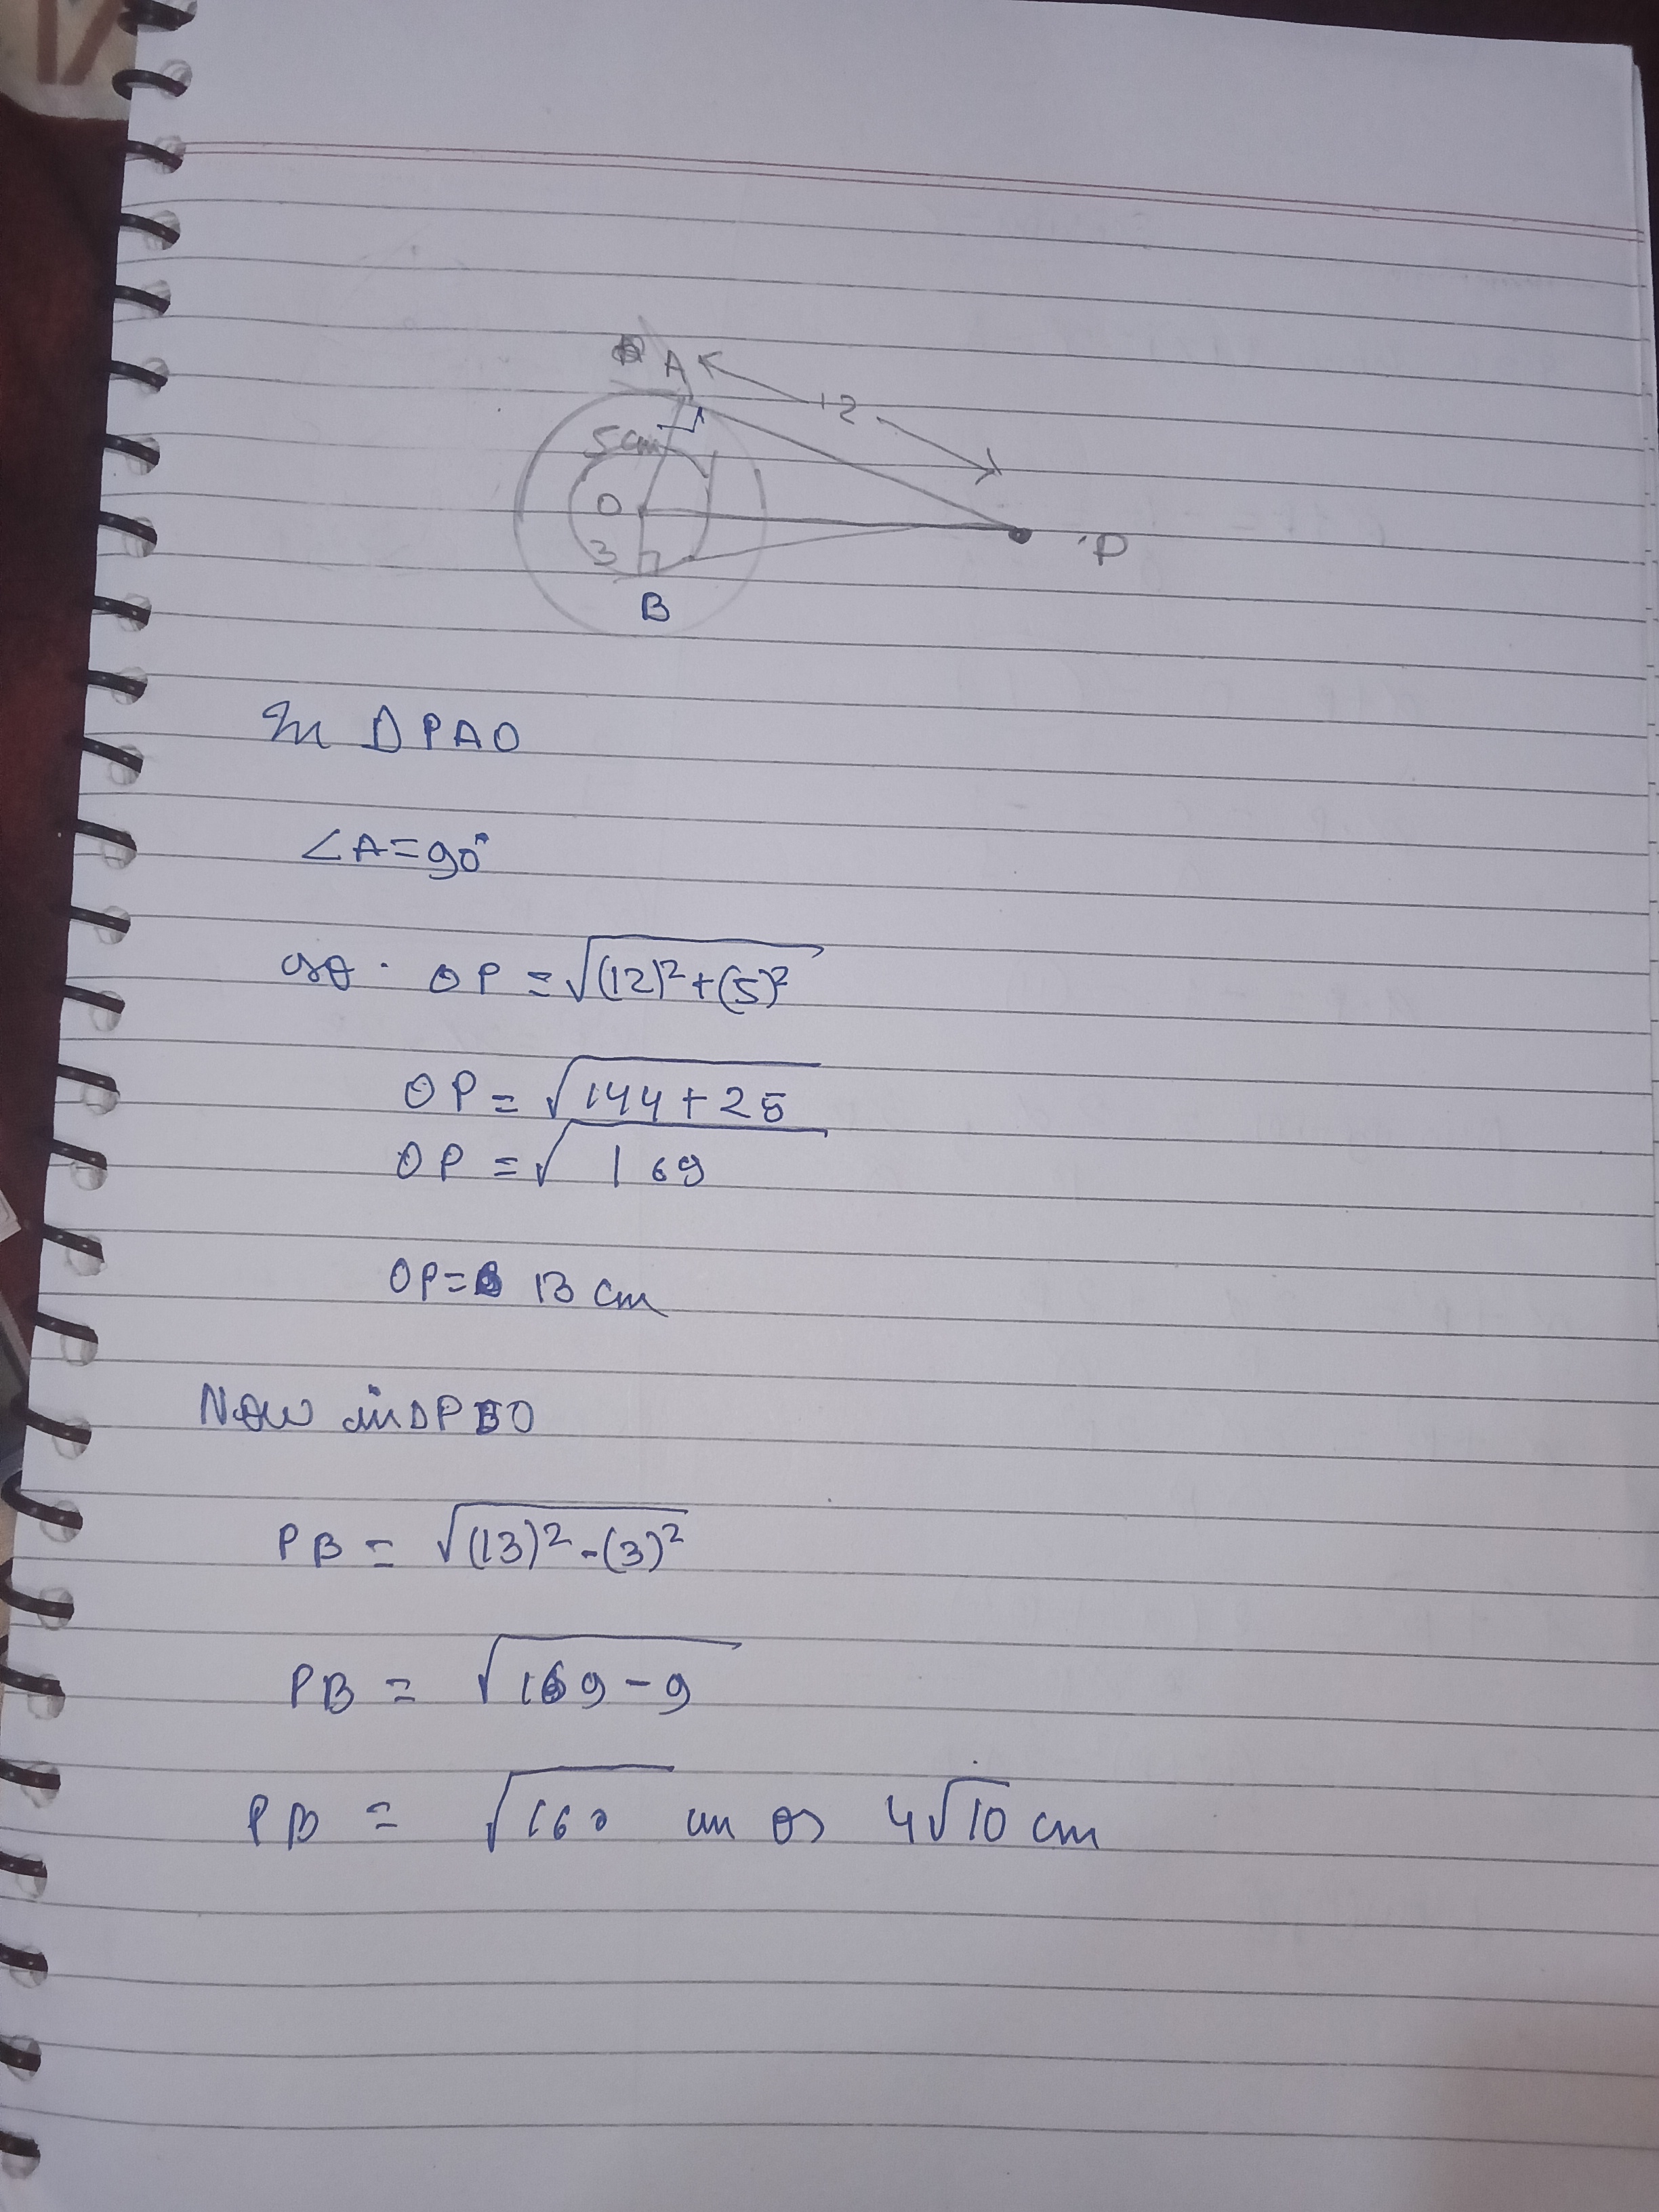 A 12
5cm
O
3
P
B
In Δ PAO
∠A=90°
so. OP = √(12)²+(5)²
OP = √144+25
OP = √169
OP= 13 cm
Now in Δ PBO
PB = √(13)²-(3)²
PB = √169-9
PB = √160 cm or 4√10 cm